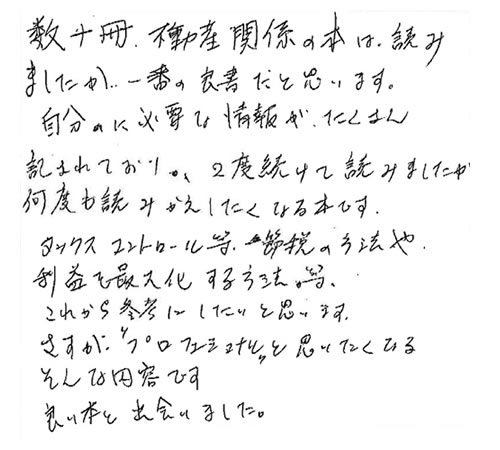 数十冊、不動産関係の本は、読み
ましたが、一番の良書だと思います。
自分のに必要な情報が、たくさん
記まれており。、2度続けて読みましたが
何度も読みかえしたくなる本です.
タックスコントロール等、節税の方法や、
利益を最大化する方法。等、
これから参考にしたいと思います.
さすが、“プロフェショナル”と思いたくなる
そんな内容です
良い本と出会いました。